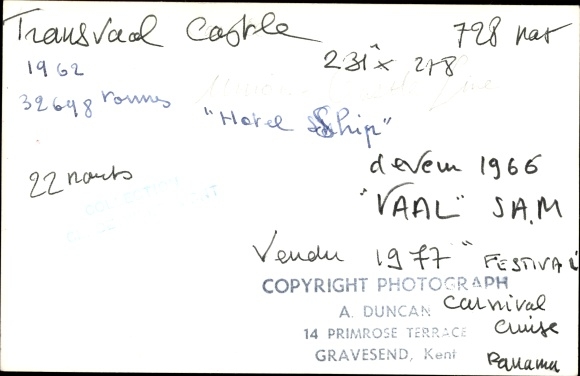 Transvaal Castle 728 pas
1962 231 x 278
32698 tonnes
"Hotel Ship"
22 nœuds
devenu 1966
"VAAL" SAM
Vendu 1977 "FESTIVAL
COPYRIGHT PHOTOGRAPH
A. DUNCAN Carnival
14 PRIMROSE TERRACE Cruise
GRAVESEND, Kent Panama